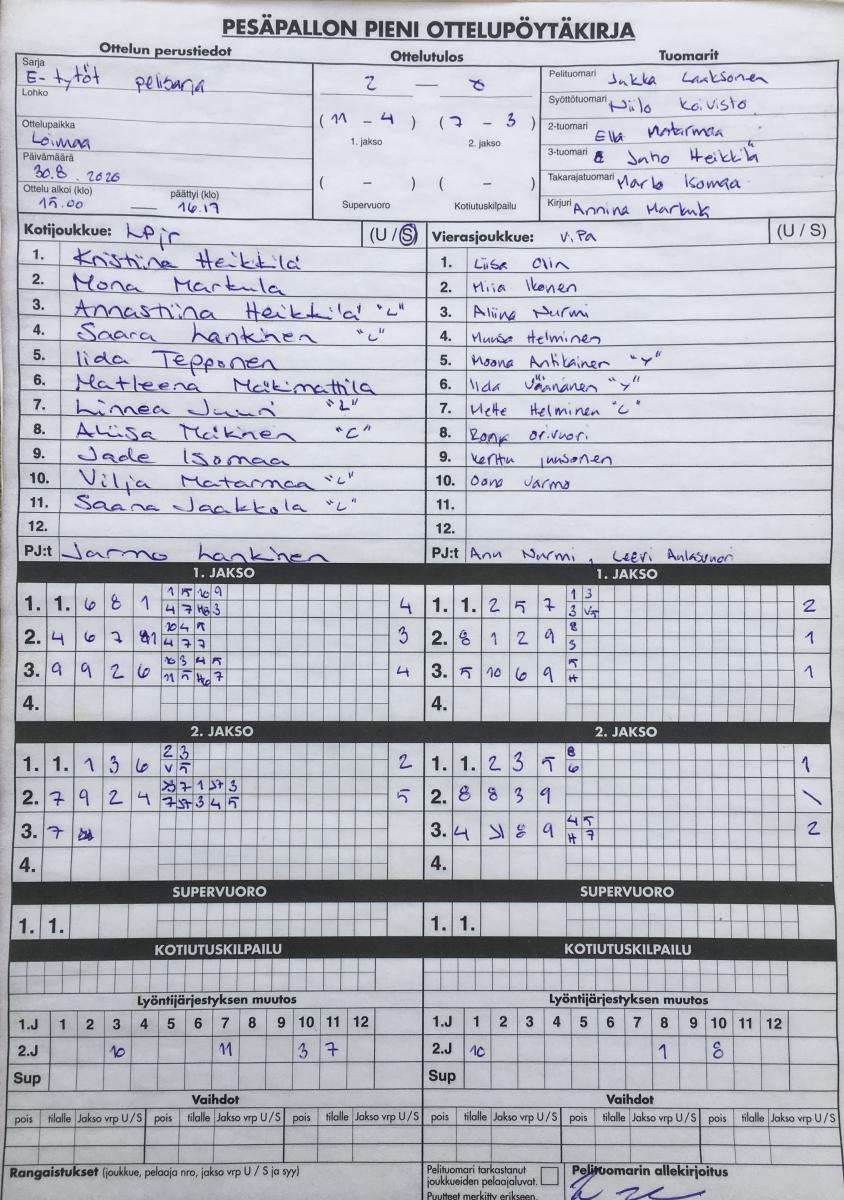 PESÄPALLON PIENI OTTELUPÖYTÄKIRJA
Ottelun perustiedot
Sarja
E-tytöt pelisarja
Lohko
Ottelupaikka
Loimaa
Päivämäärä
30.8.2020
Ottelu alkoi (klo) päättyi (klo)
15.00 — 16.17
Ottelutulos
2 — 0
(11 - 4) (7 - 3)
1. jakso 2. jakso
( - ) ( - )
Supervuoro Kotiutuskilpailu
Tuomarit
Pelituomari Jukka Laaksonen
Syöttötuomari Niilo Koivisto
2-tuomari Ella Matarmaa
3-tuomari Juho Heikkilä
Takarajatuomari Marko Isomaa
Kirjuri Annina
Kotijoukkue: LPjr (U / S)
1. Kristiina Heikkilä
2. Mona Markula
3. Annastiina Heikkilä "L"
4. Saara Lankinen "L"
5. Iida Tepponen
6. Matleena Mäkimattila
7. Linnea Juuri "L"
8. Aliisa Mäkinen "C"
9. Jade Isomaa
10. Vilja Matarmaa "L"
11. Saana Jaakkola "L"
12.
PJ:t Jarmo Lankinen
Vierasjoukkue: ViPa (U / S)
1. Liisa Olin
2. Miia Ikonen
3. Aliina Nurmi
4. Helminen
5. Moona Antikainen "Y"
6. Iida Väänänen "Y"
7. Mette Helminen "L"
8. Ronja Orivuori
9. Kerttu Juusonen
10. Oona Varmo
11.
12.
PJ:t Anu Nurmi, Leevi
1. JAKSO
1. 1. 6 8 1 4
1 5 10 9
4 7 H6 3
2. 4 6 7 3
10 4 5
4 7 7
3. 9 9 2 6 4
10 3 4 5
11 5 H6 7
4.
1. JAKSO
1. 1. 2 5 7 2
1 3
3 V5
2. 8 1 2 9 1
8
3
3. 5 10 6 9 1
5
H
4.
2. JAKSO
1. 1. 1 3 6 2
2 3
V 5
2. 7 9 2 4 5
7 1 S7 3
7 S7 3 4 5
3. 7
4.
2. JAKSO
1. 1. 2 3 5 1
8
6
2. 8 8 3 9 \
3. 4 8 9 2
4 5
H 7
4.
SUPERVUORO
1. 1.
SUPERVUORO
1. 1.
KOTIUTUSKILPAILU
KOTIUTUSKILPAILU
Lyöntijärjestyksen muutos
1.J 1 2 3 4 5 6 7 8 9 10 11 12
2.J 10 11 3 7
Sup
Lyöntijärjestyksen muutos
1.J 1 2 3 4 5 6 7 8 9 10 11 12
2.J 10 1 8
Sup
Vaihdot
pois tilalle Jakso vrp U / S pois tilalle Jakso vrp U / S pois tilalle Jakso vrp U / S
Vaihdot
pois tilalle Jakso vrp U / S pois tilalle Jakso vrp U / S pois tilalle Jakso vrp U / S
Rangaistukset (joukkue, pelaaja nro, jakso vrp U / S ja syy)
Pelituomari tarkastanut
joukkueiden pelaajaluvat.
Puutteet merkitty erikseen.
Pelituomarin allekirjoitus